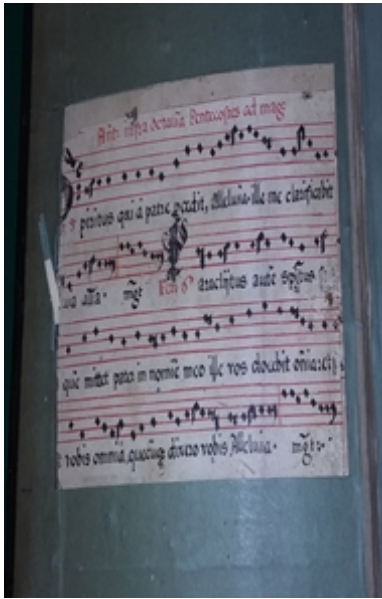 Añe infra octauã Pentecostes ad mag
Spiritus qui á patre procedit, Alleluia ille me clarificabit
luia alĩa. mgt Feria 6ª Paraclytus aute spũs
quẽ mittet pater in nomiẽ meo ille vos docebit oñia: et
vobis omniá, quecũq dixero vobis Alleluia. mgt: